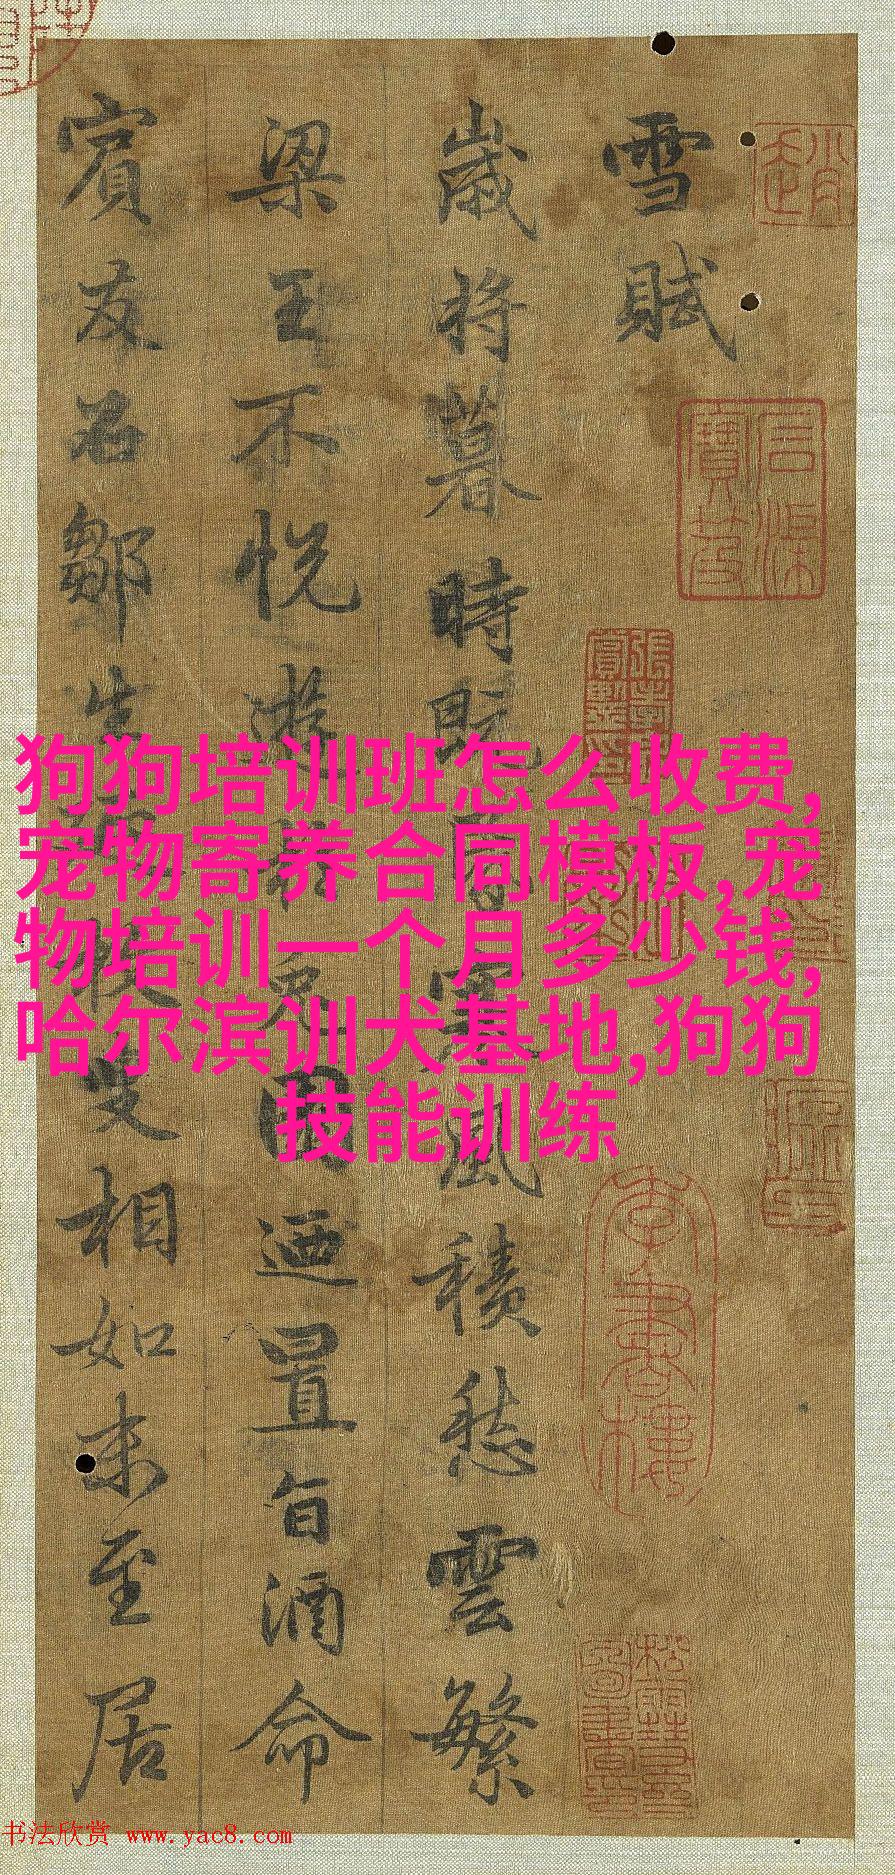 雪賦
歲將暮時既昏寒風積愁雲繁
梁王不悅遊於兔園迺置旨酒命
賓友召鄒生枚叟相如末至居
狗狗培训班怎么收费,
宠物寄养合同模板,宠
物培训一个月多少钱,
哈尔滨训犬基地,狗狗
技能训练
书法欣赏 www.yac8.com